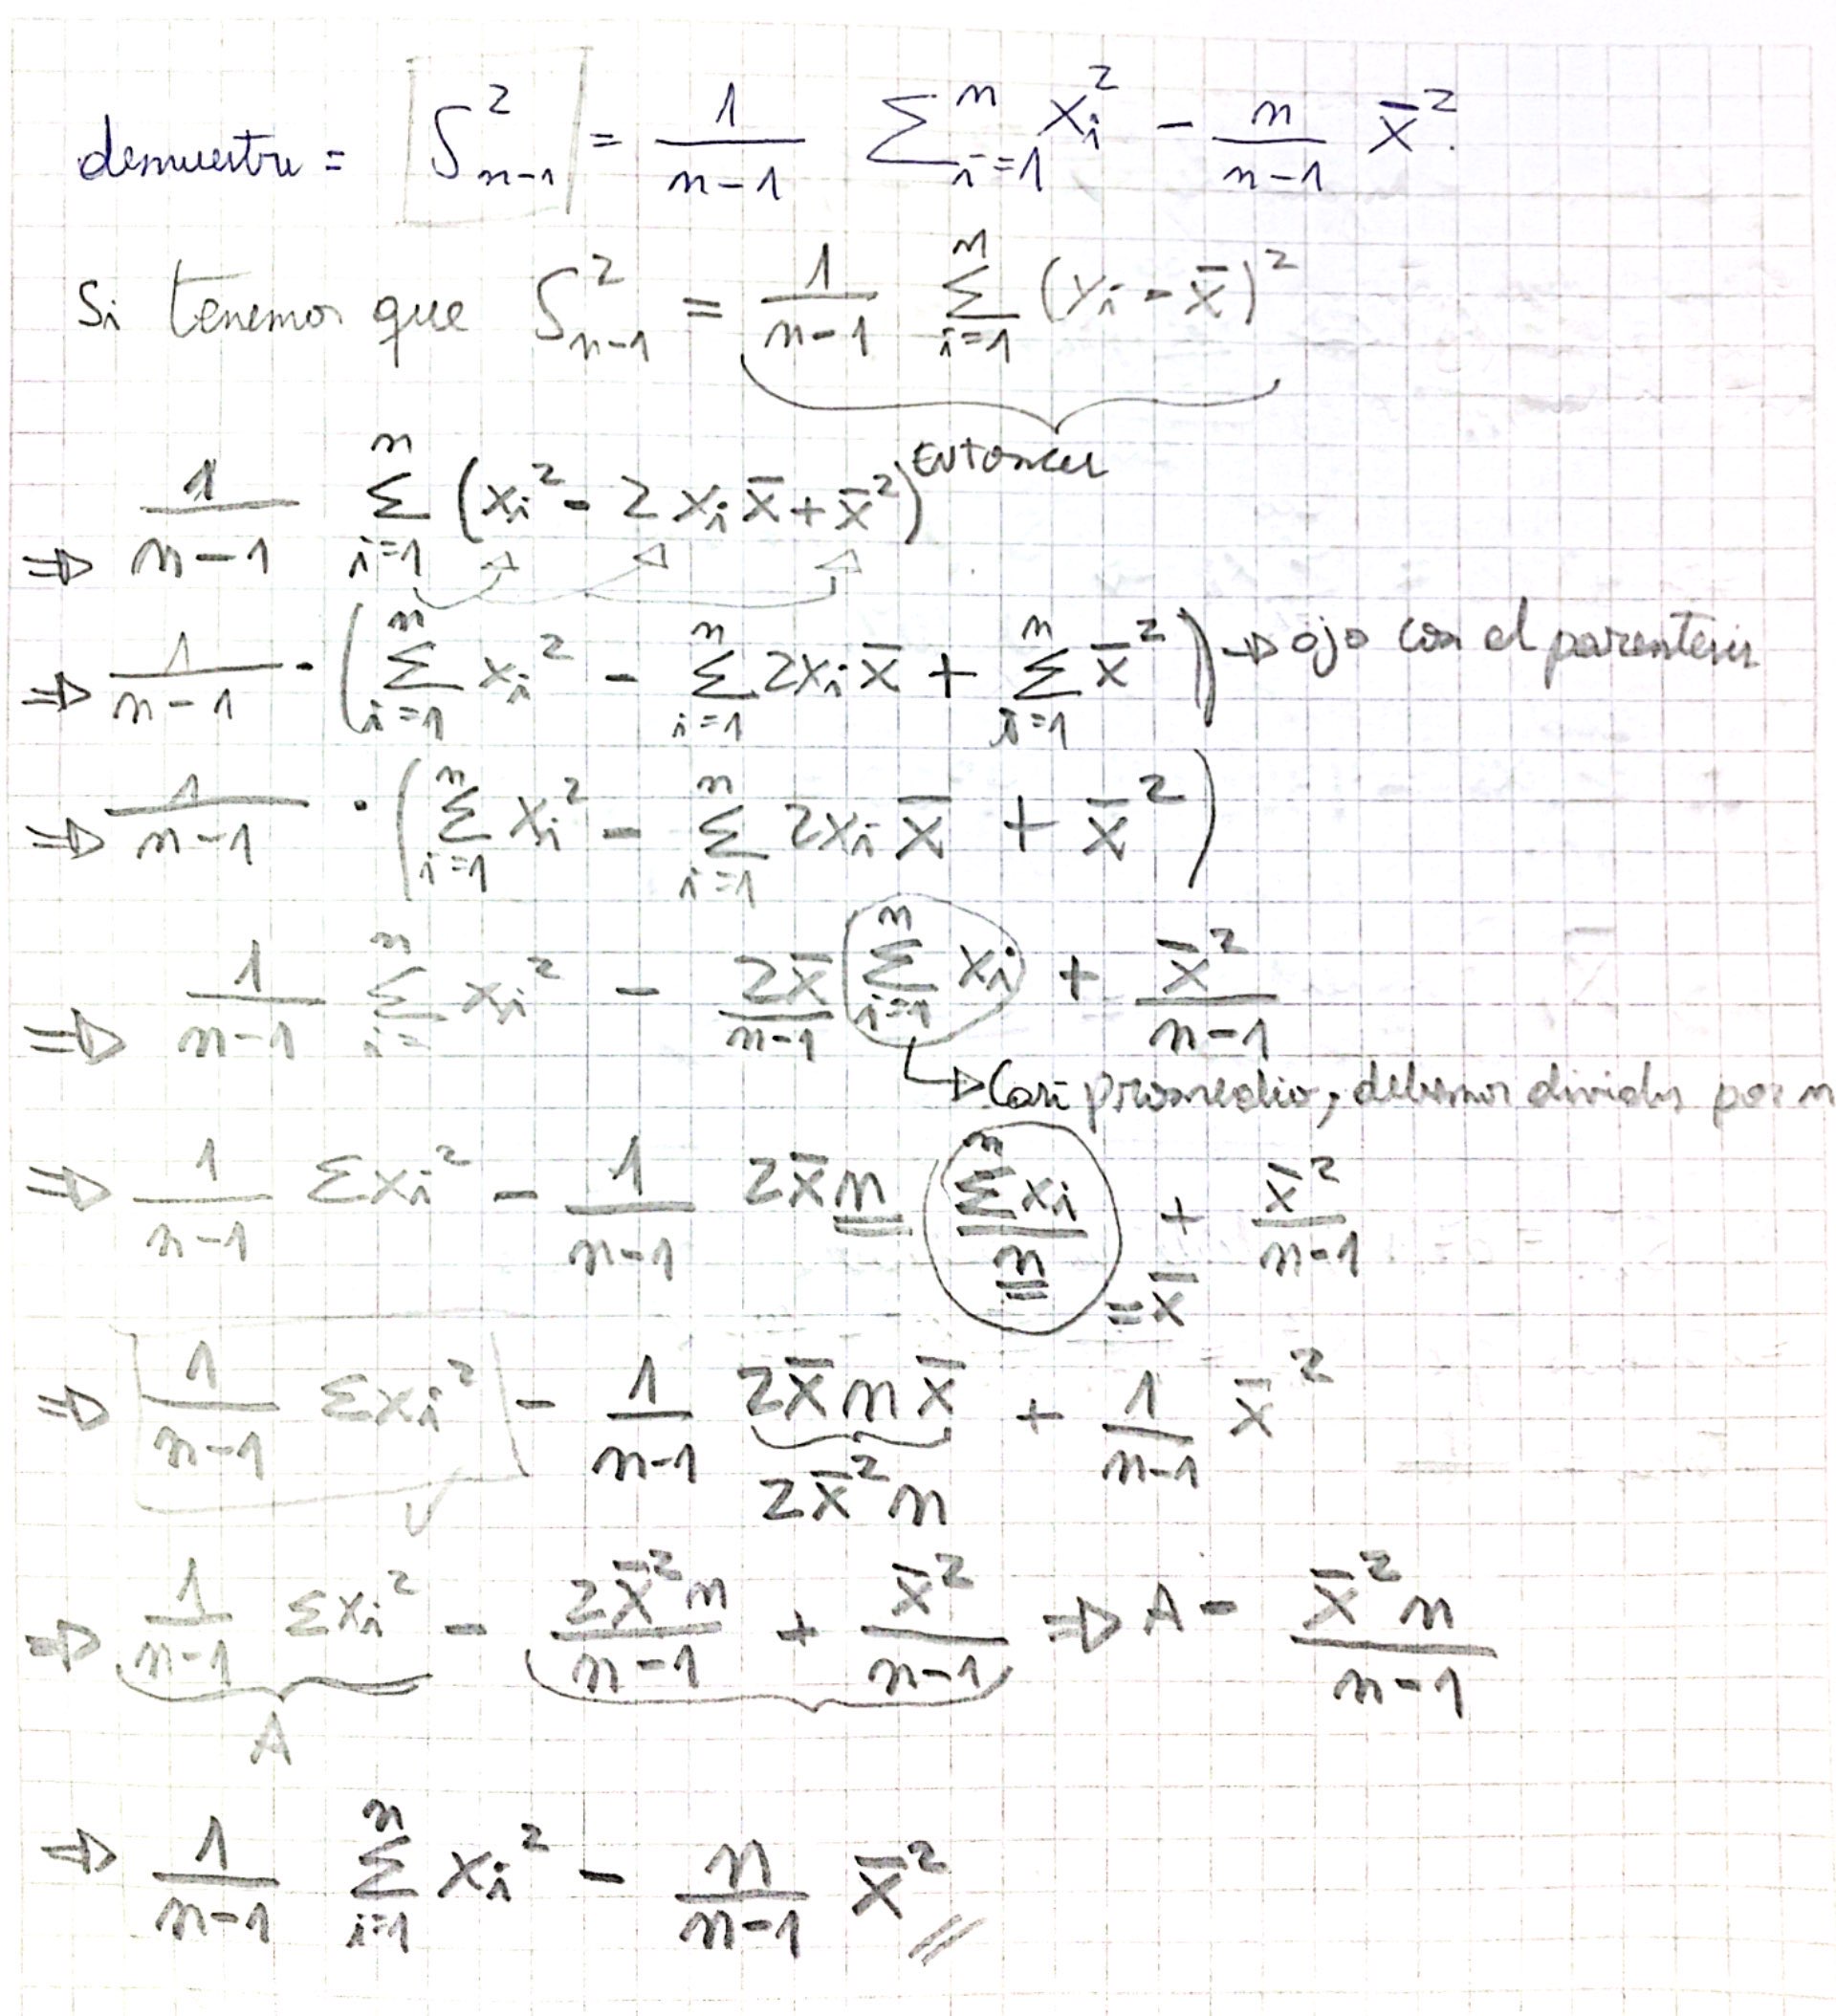 demuestre = S²ₙ₋₁ = 1/(n-1) Σⁿᵢ₌₁ xᵢ² - n/(n-1) x̄².
Si tenemos que S²ₙ₋₁ = 1/(n-1) Σⁿᵢ₌₁ (xᵢ - x̄)²
Entonces
⇒ 1/(n-1) Σⁿᵢ₌₁ (xᵢ² - 2xᵢx̄ + x̄²)
⇒ 1/(n-1) · (Σⁿᵢ₌₁ xᵢ² - Σⁿᵢ₌₁ 2xᵢx̄ + Σⁿᵢ₌₁ x̄²) → ojo con el parentesis
⇒ 1/(n-1) · (Σⁿᵢ₌₁ xᵢ² - Σⁿᵢ₌₁ 2xᵢx̄ + x̄²)
⇒ 1/(n-1) Σⁿᵢ₌ xᵢ² - 2x̄/(n-1) Σⁿᵢ₌₁ xᵢ + x̄²/(n-1)
↳ Casi promedio, debemos dividir por n
⇒ 1/(n-1) Σxᵢ² - 1/(n-1) 2x̄n (Σⁿxᵢ/n) + x̄²/(n-1)
= x̄
⇒ 1/(n-1) Σxᵢ² - 1/(n-1) 2x̄nx̄ + 1/(n-1) x̄²
✓ 2x̄²n
⇒ 1/(n-1) Σxᵢ² - 2x̄²n/(n-1) + x̄²/(n-1) ⇒ A - x̄²n/(n-1)
A
⇒ 1/(n-1) Σⁿᵢ₌₁ xᵢ² - n/(n-1) x̄² //